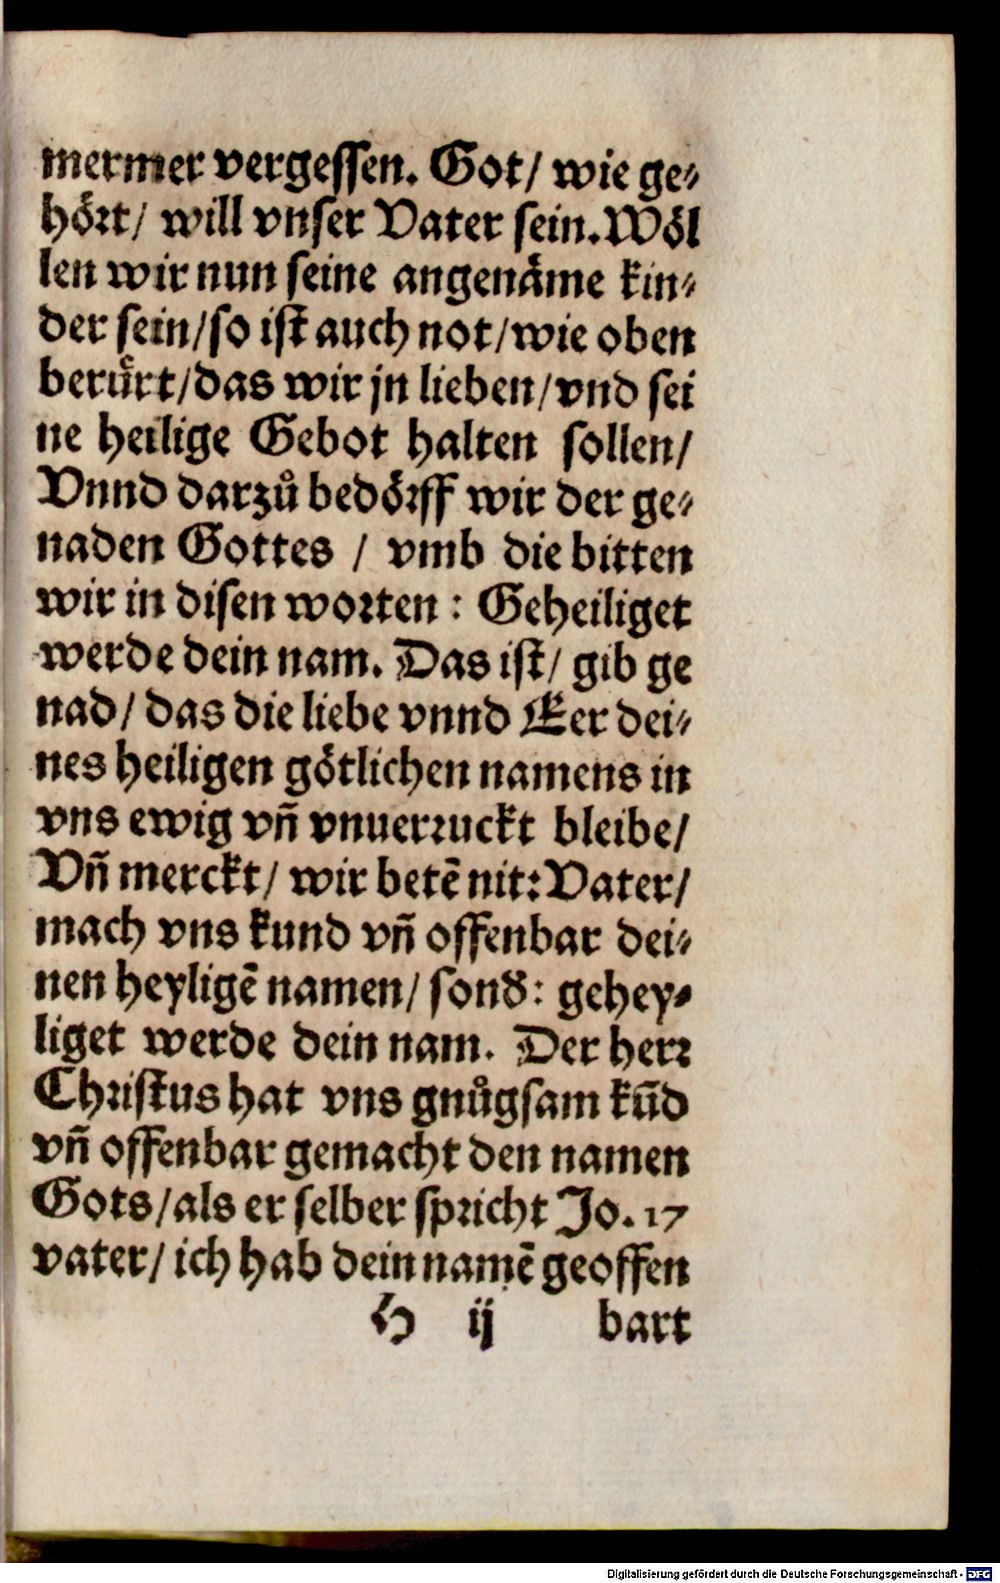 mermer vergessen. Got/ wie ge⸗
hört/ will vnser Vater sein. Wöl
len wir nun seine angenäme kin⸗
der sein/ so ist auch not/ wie oben
berürt/ das wir jn lieben/ vnd sei
ne heilige Gebot halten sollen/
Vnnd darzů bedörff wir der ge⸗
naden Gottes / vmb die bitten
wir in disen worten : Geheiliget
werde dein nam. Das ist/ gib ge
nad/ das die liebe vnnd Eer dei⸗
nes heiligen götlichen namens in
vns ewig vñ vnuerruckt bleibe/
Vñ merckt/ wir betē nit: Vater/
mach vns kund vñ offenbar dei⸗
nen heyligē namen/ sonđ: gehey⸗
liget werde dein nam. Der herr
Christus hat vns gnůgsam kūd
vñ offenbar gemacht den namen
Gots/ als er selber spricht Jo. 17
vater/ ich hab dein namē geoffen
H ij bart
Digitalisierung gefördert durch die Deutsche Forschungsgemeinschaft - DFG